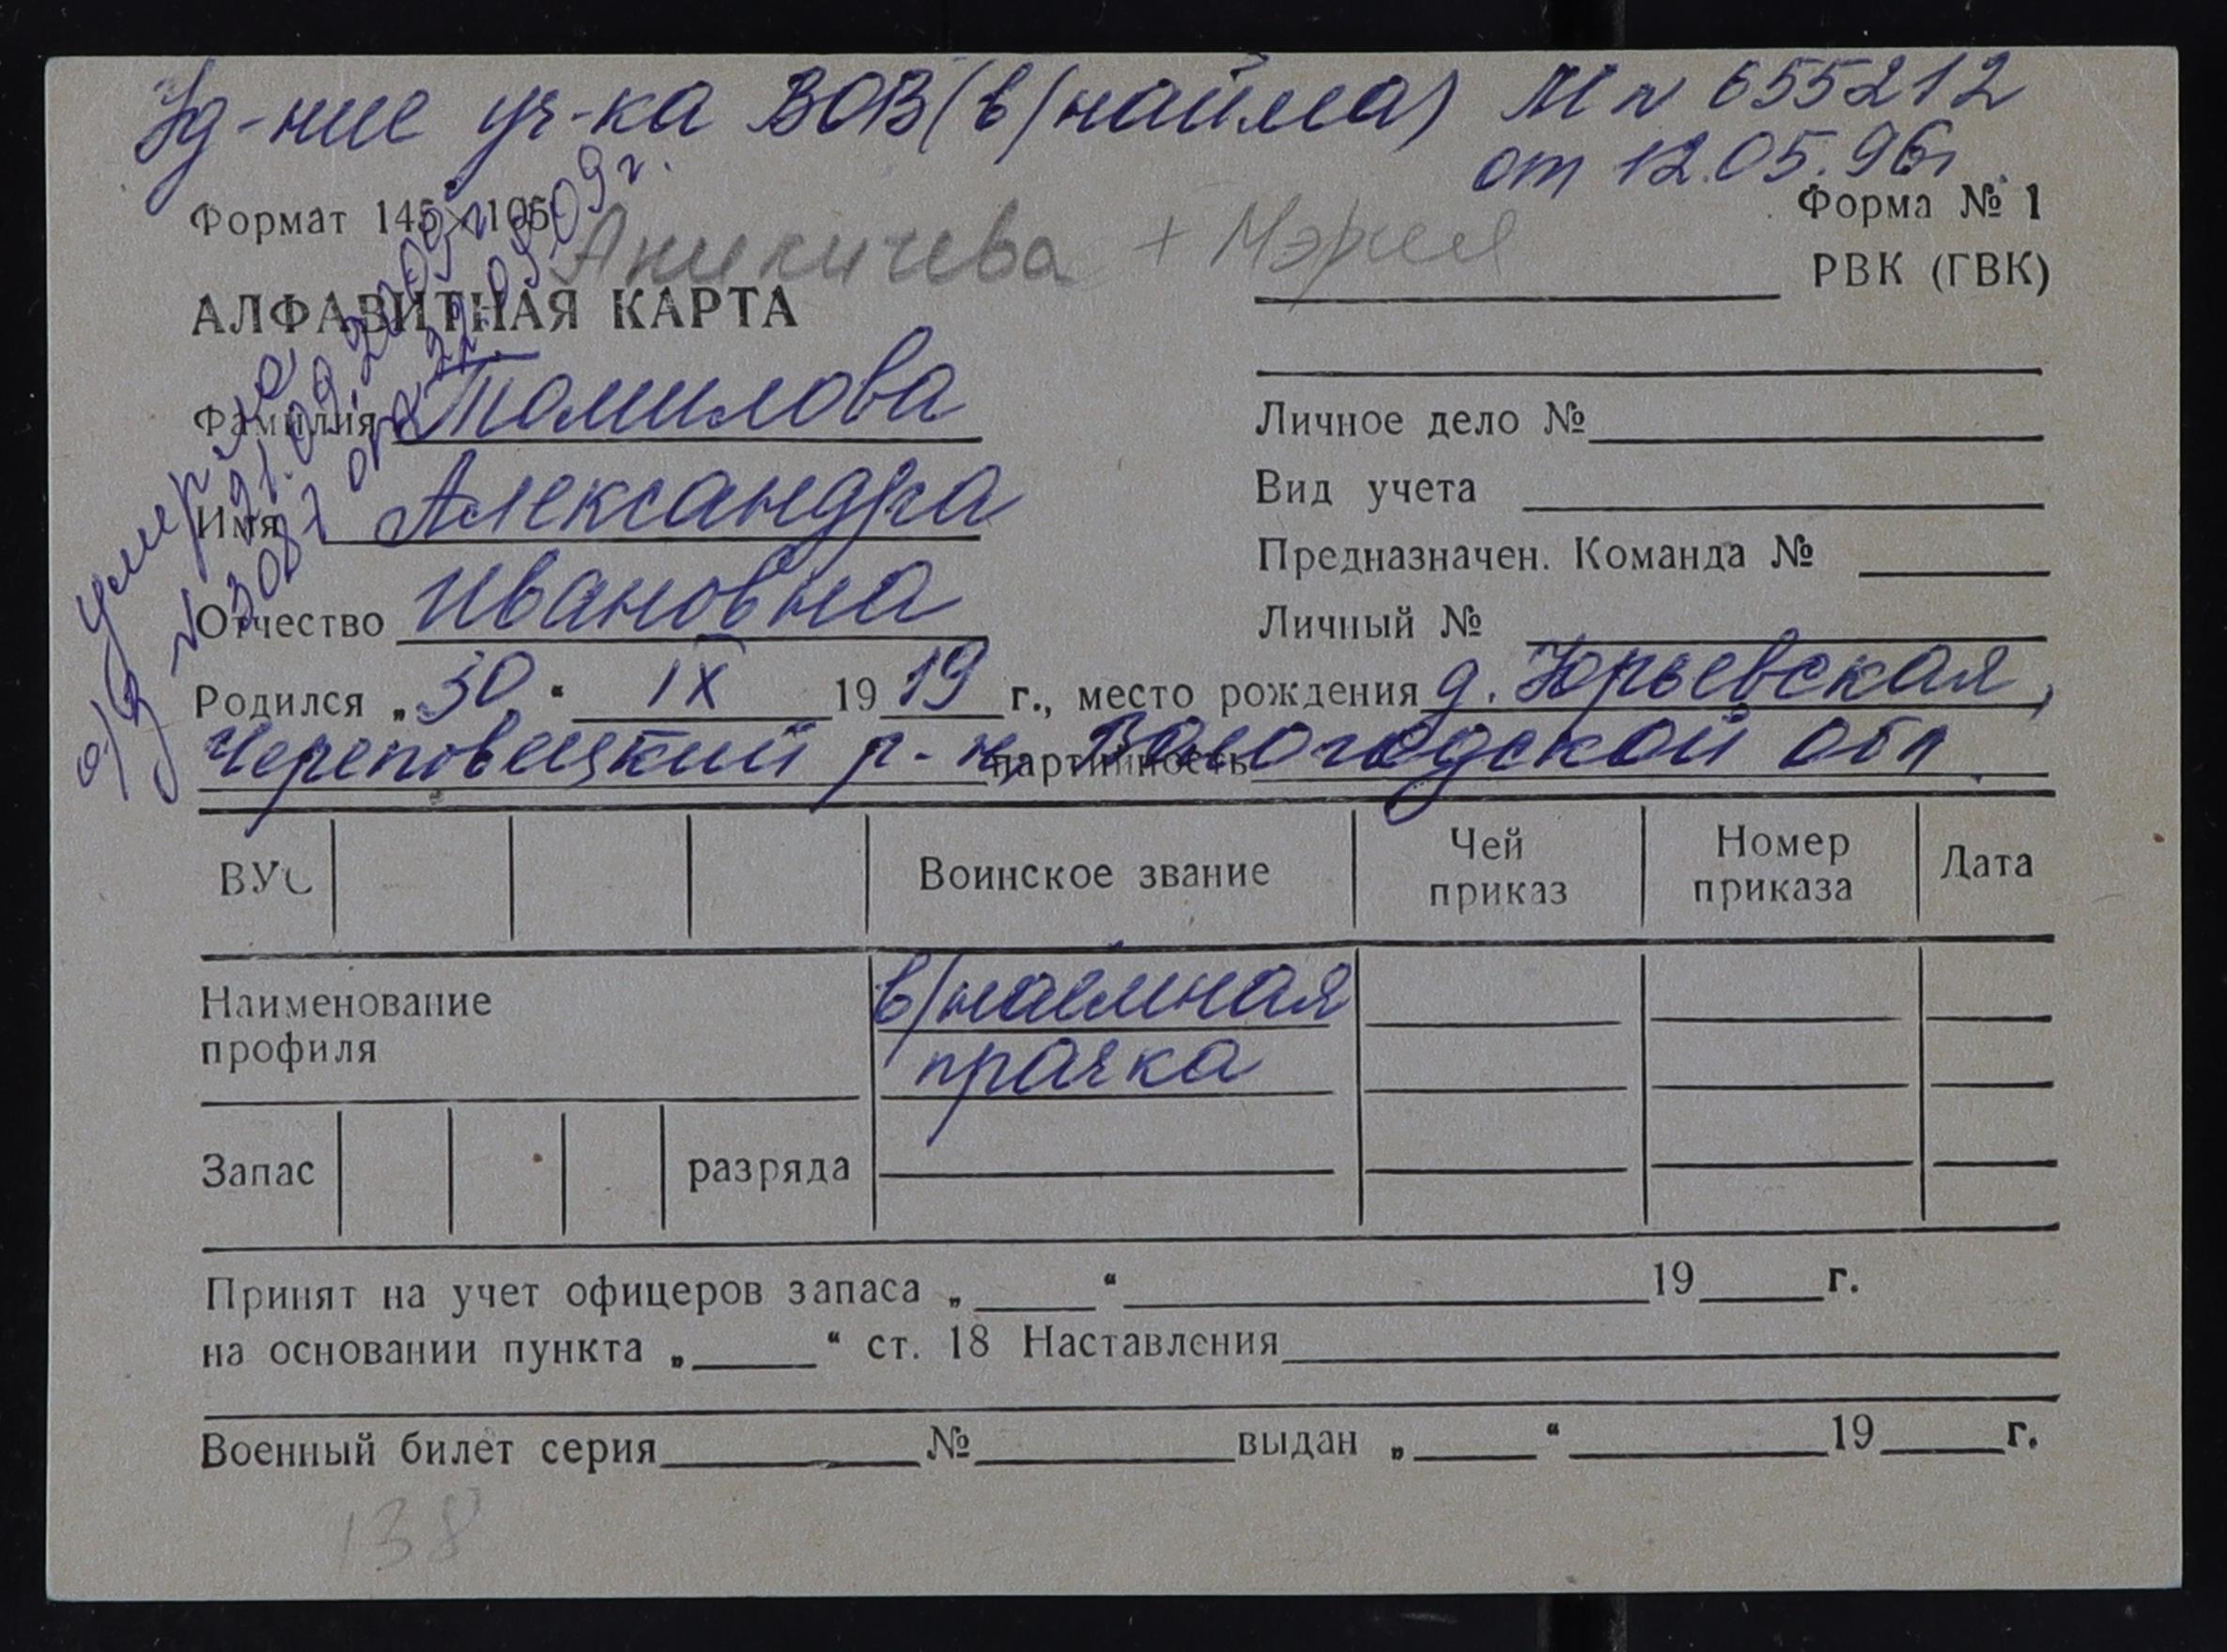 Уд-ние уч-ка ВОВ (в/найма) М № 655212
от 12.05.96г.
Формат 145×105
Форма № 1
Аникичева + Мэрия
РВК (ГВК)
АЛФАВИТНАЯ КАРТА
умерла
21.09.2009г
№ 3087 от 22.09.09г.
Фамилия Томилова
Личное дело №
Имя Александра
Вид учета
Предназначен. Команда №
Отчество Ивановна
Личный №
Родился „30“ IX 1919 г., место рождения д. Юрьевская,
Череповецкий р-н, партийность Вологодской обл.
ВУС Воинское звание Чей приказ Номер приказа Дата
Наименование профиля
в/наемная
прачка
Запас разряда
Принят на учет офицеров запаса „ “ 19 г.
на основании пункта „ “ ст. 18 Наставления
Военный билет серия № выдан „ “ 19 г.
138